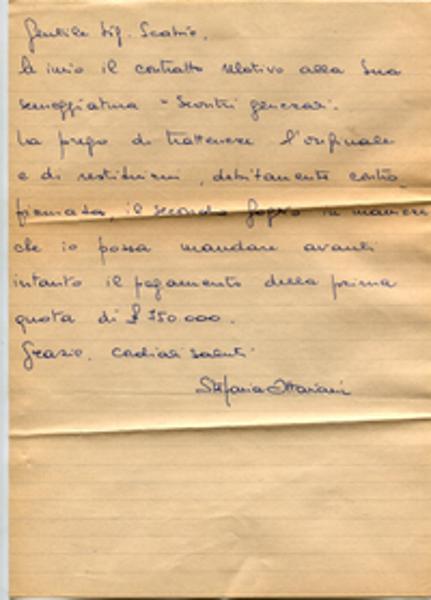 Gentile Sig. Scabio,
le invio il contratto relativo alla Sua
sceneggiatura "Scontri generaz."
La prego di trattenere l'originale
e di restituirmi, debitamente contro
firmata, il secondo foglio in maniera
che io possa mandare avanti
intanto il pagamento della prima
quota di £ 750.000.
Grazie. Cordiali saluti
Stefania